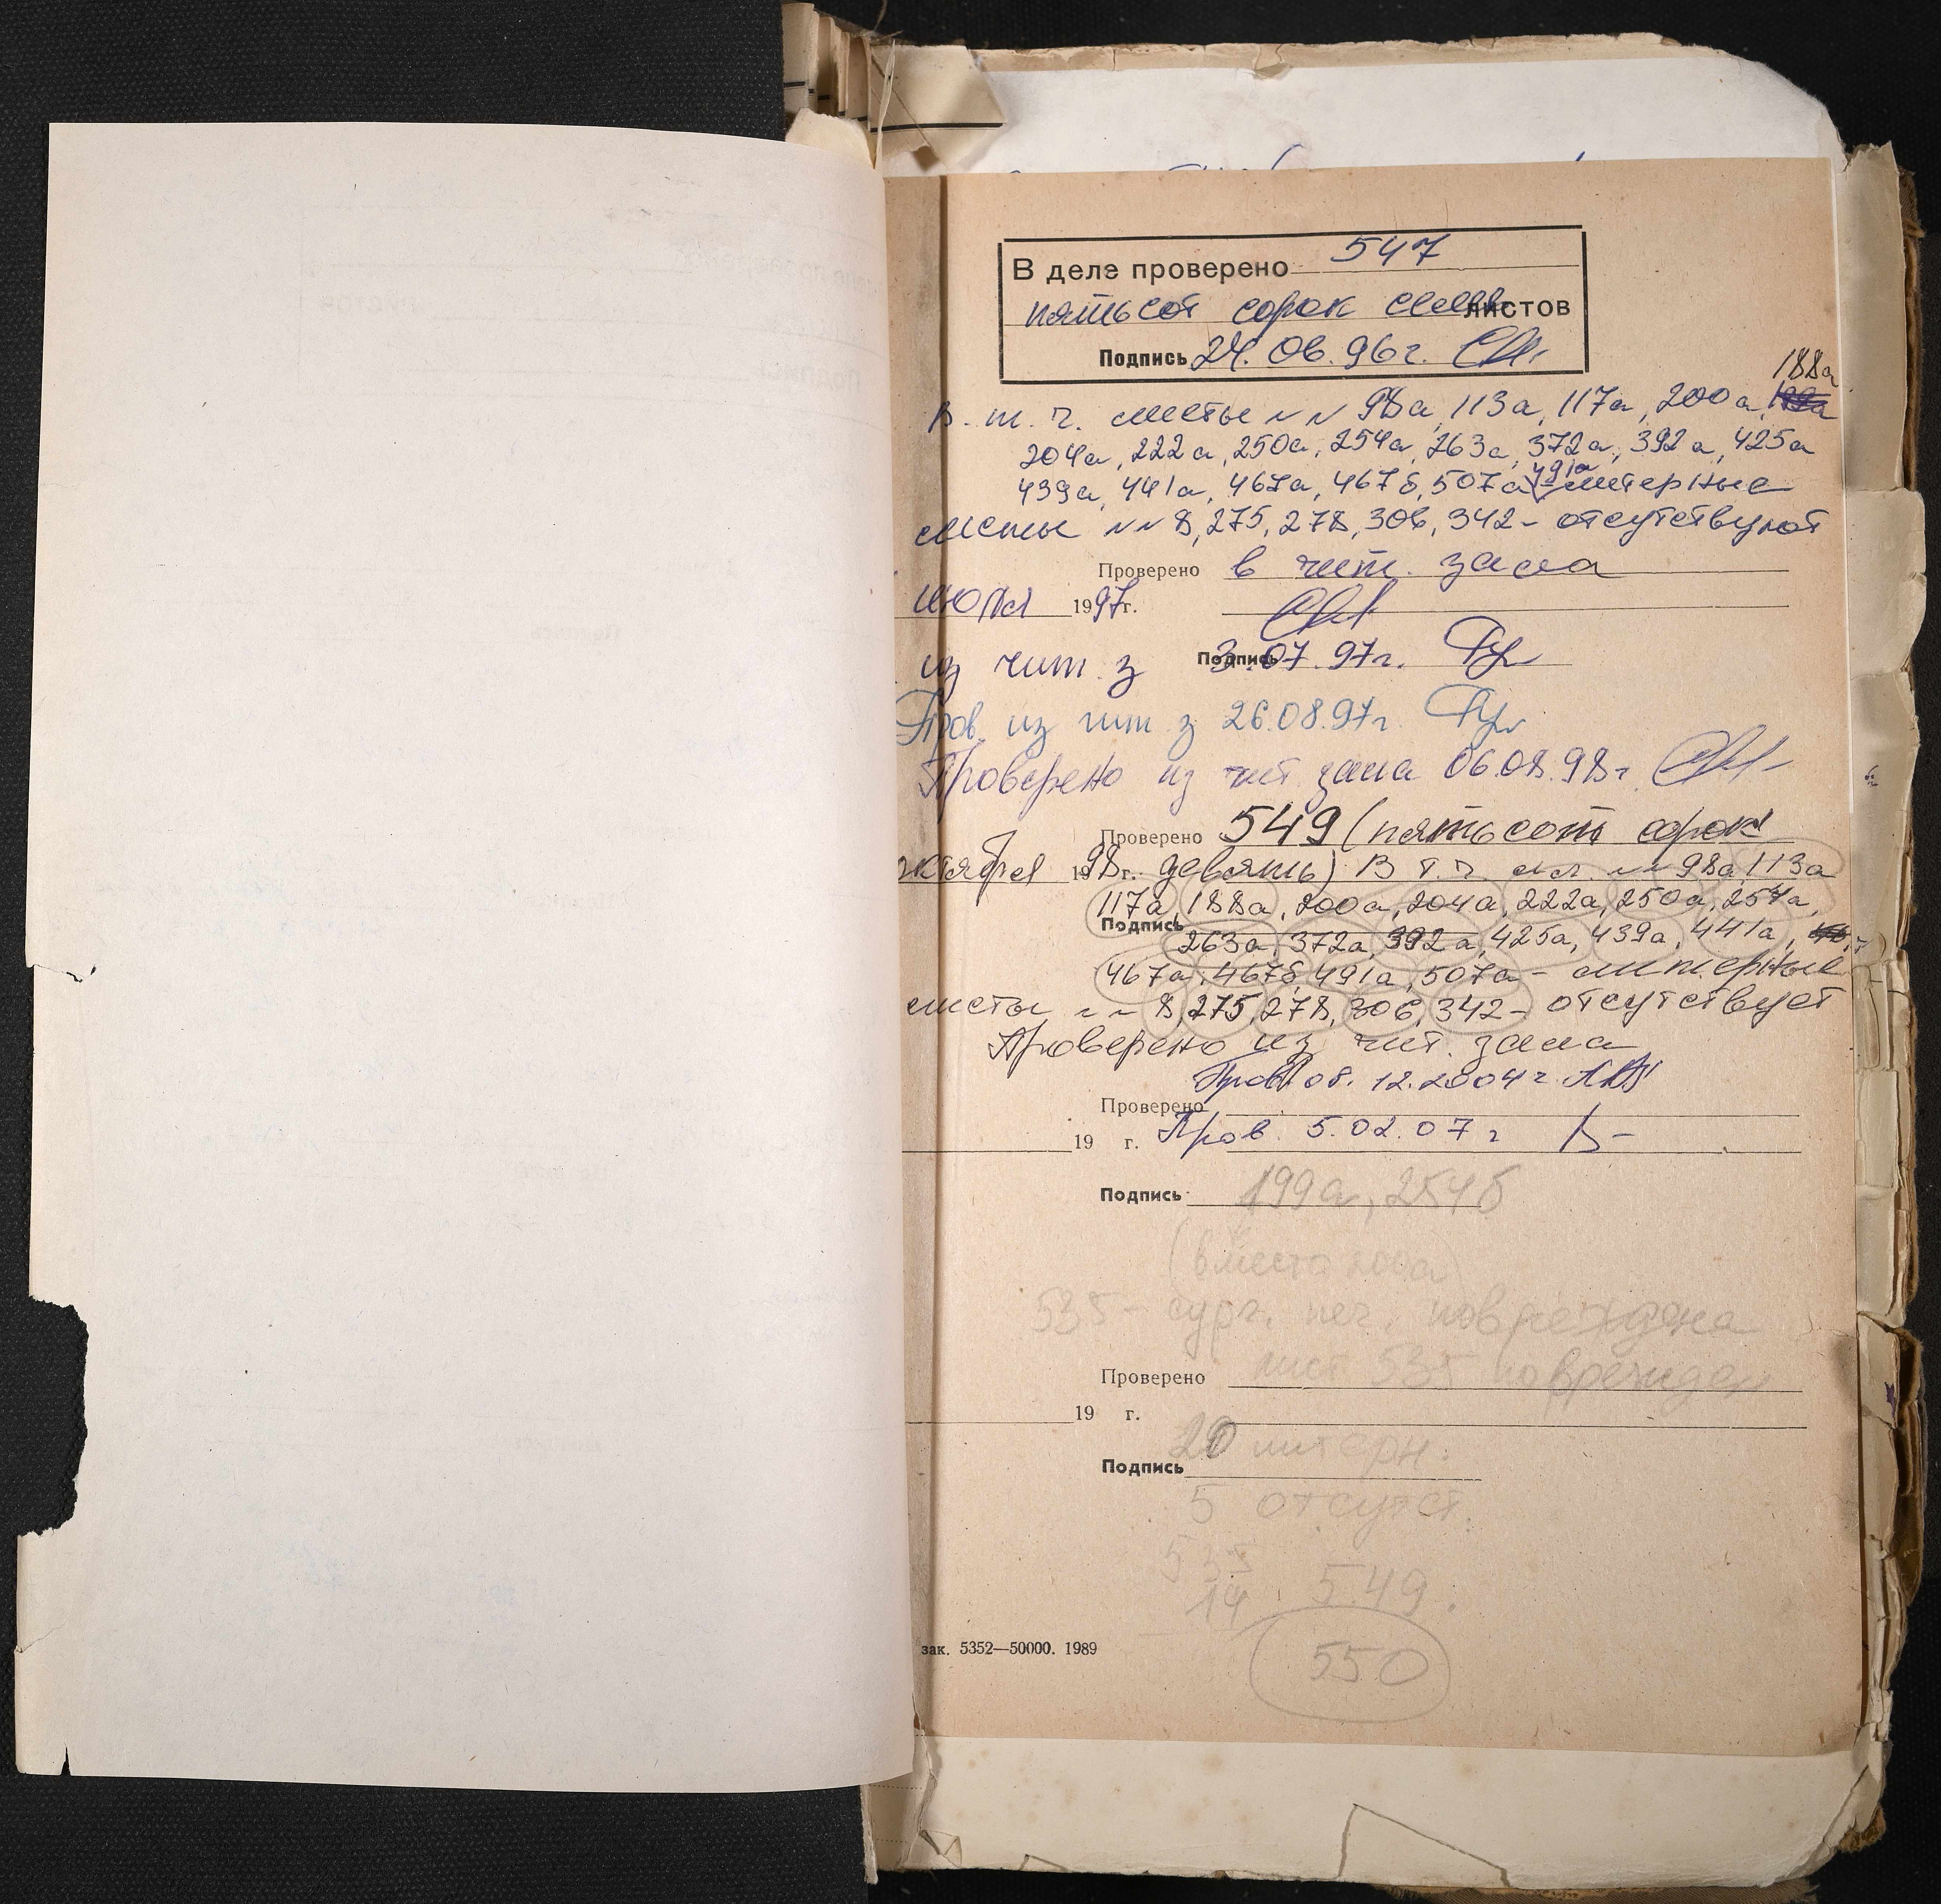 В деле проверено 547
пятьсот сорок семь листов
Подпись 24.06.96г.
188а
В т. ч. листы №№ 98а, 113а, 117а, 200а,
204а, 222а, 250а, 254а, 263а, 372а, 392а, 425а
491а
439а, 441а, 467а, 467б, 507а - литерные
листы №№ 8, 275, 278, 306, 342 - отсутствуют
Проверено в чит. зала
июля 1997г.
из чит. з Подпись 3.07.97г.
Пров. из чит. з 26.08.97г.
Проверено из чит. зала 06.08.98г.
Проверено 549 (пятьсот сорок
октября 1998г. девять) В т.ч. л.л. №№ 98а, 113а
117а, 188а, 200а, 204а, 222а, 250а, 254а,
Подпись
263а, 372а, 392а, 425а, 439а, 441а,
467а, 467б, 491а, 507а - литерные
листы №№ 8, 275, 278, 306, 342 - отсутствует
Проверено из чит. зала
Пров. 08.12.2004г.
Проверено
19 г. Пров. 5.02.07г
Подпись 199а, 254б
(вместо 200а)
535 - сург. печ. повреждена
Проверено лист 535 поврежден
19 г.
20 литерн.
Подпись
5 отсутст.
535
14 549.
зак. 5352—50000. 1989
550